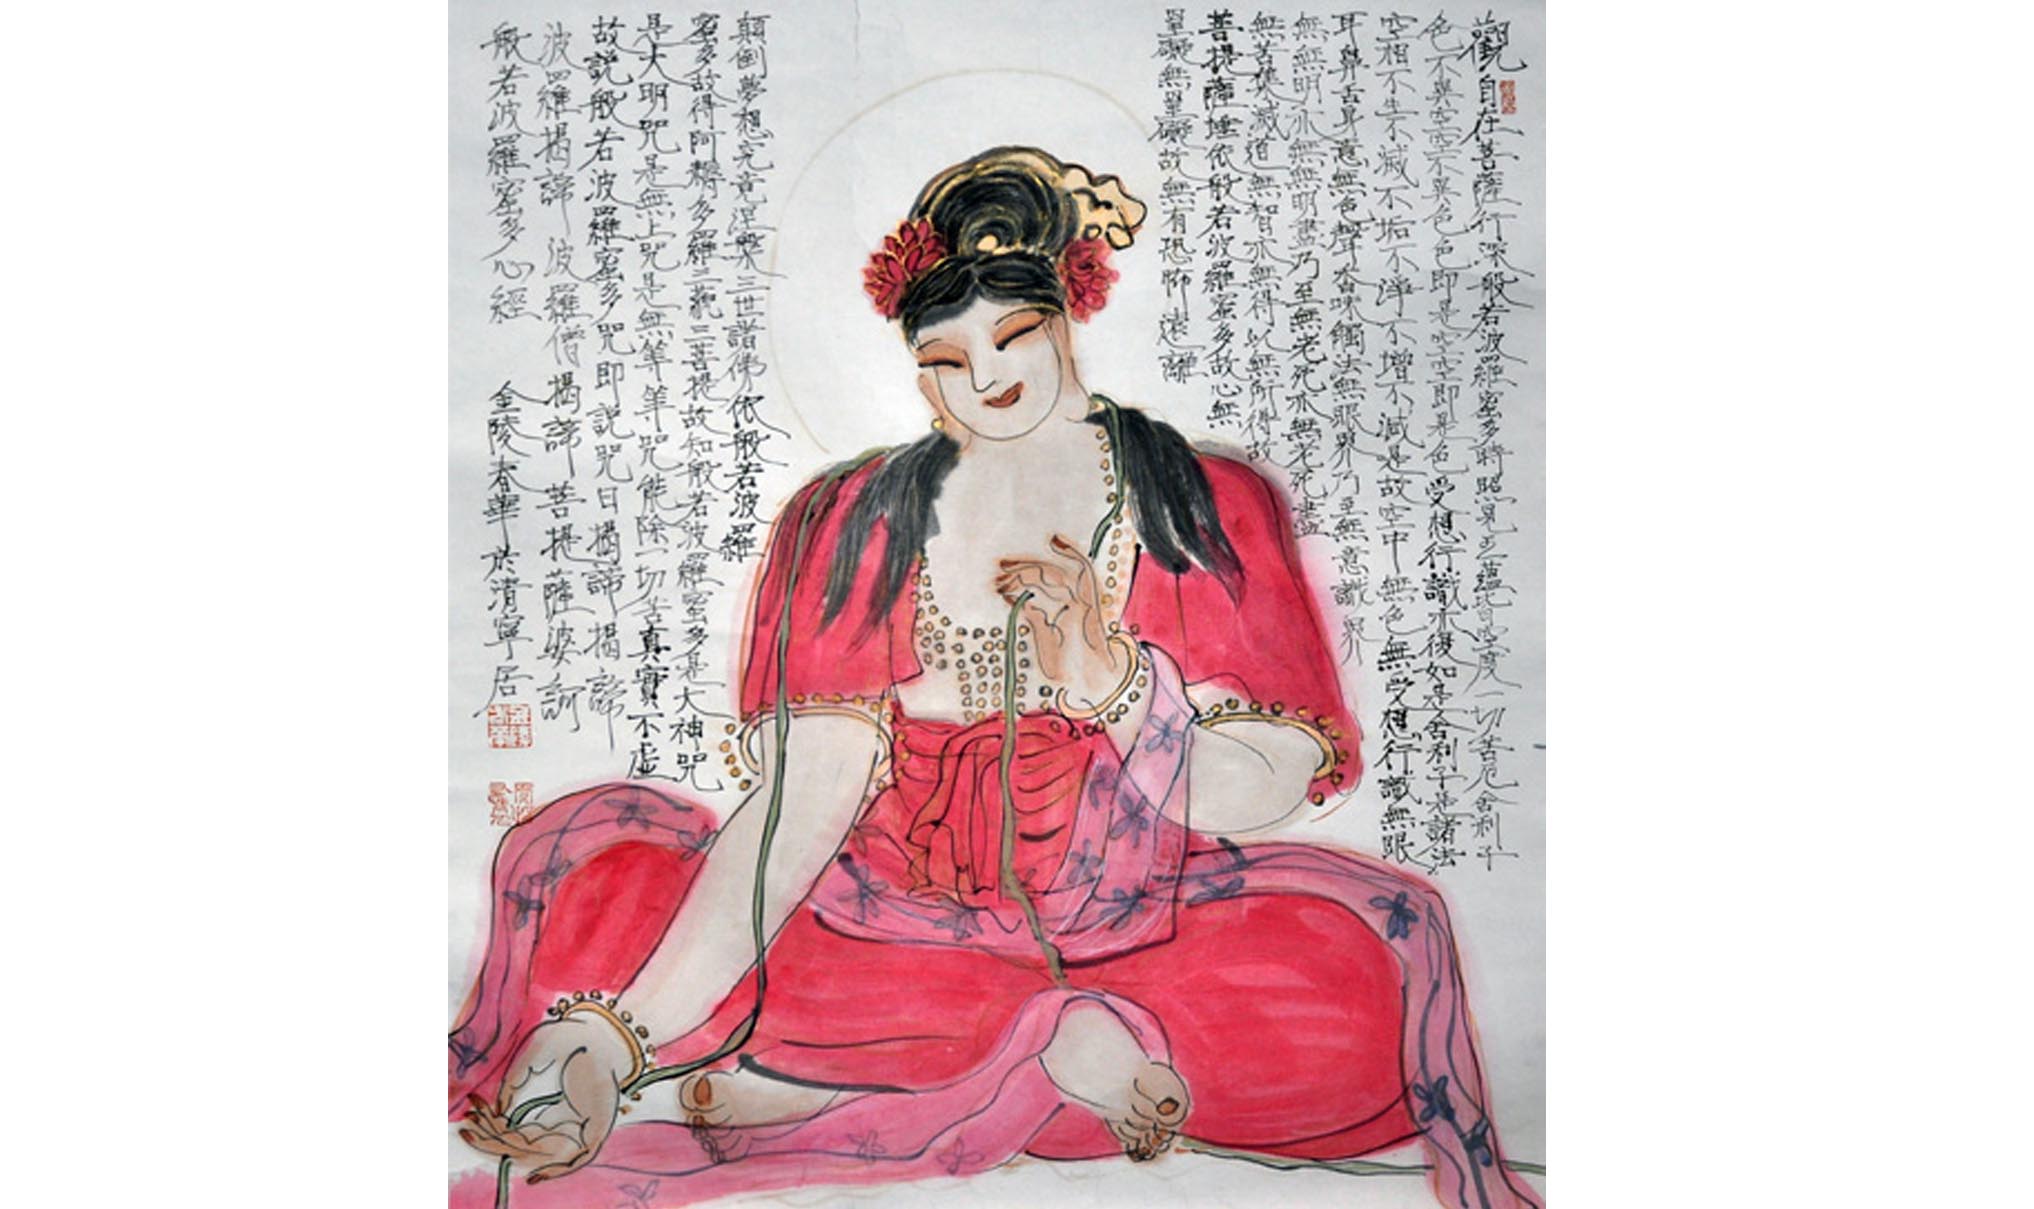 觀自在菩薩行深般若波羅蜜多時照見五蘊皆空度一切苦厄舍利子
色不異空空不異色色即是空空即是色受想行識亦復如是舍利子是諸法
空相不生不滅不垢不淨不增不減是故空中無色無受想行識無眼
耳鼻舌身意無色聲香味觸法無眼界乃至無意識界
無無明亦無無明盡乃至無老死亦無老死盡
無苦集滅道無智亦無得以無所得故
菩提薩埵依般若波羅蜜多故心無
罣礙無罣礙故無有恐怖遠離
顛倒夢想究竟涅槃三世諸佛依般若波羅
蜜多故得阿耨多羅三藐三菩提故知般若波羅蜜多是大神咒
是大明咒是無上咒是無等等咒能除一切苦真實不虛
故説般若波羅蜜多咒即説咒曰揭諦揭諦
波羅揭諦波羅僧揭諦菩提薩婆訶
般若波羅蜜多心經 金陵春華於清寧居